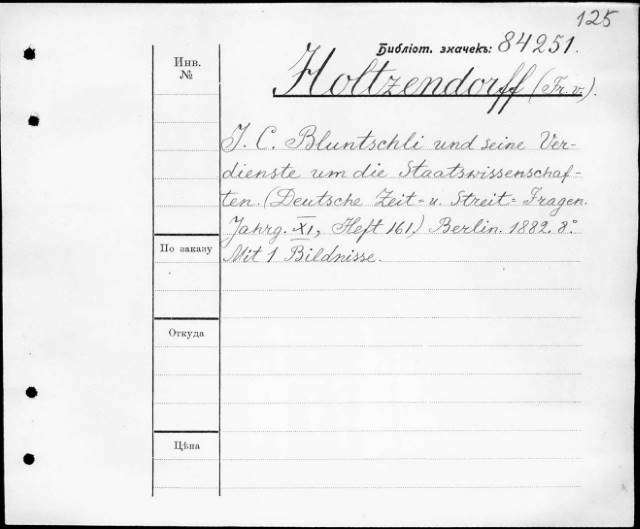 125
Библіот. значекъ: 84251.
Инв. №
Holtzendorff (Fr. v.).
J. C. Bluntschli und seine Ver-
dienste um die Staatswissenschaf-
ten. (Deutsche Zeit= u. Streit=Fragen.
Jahrg. XI, Heft 161) Berlin. 1882. 8°.
По заказу
Mit 1 Bildnisse.
Откуда
Цѣна